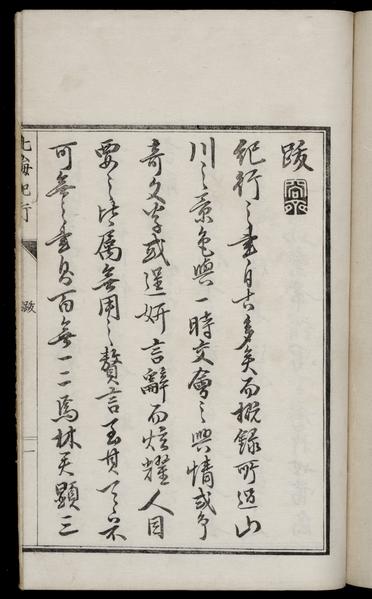 跋
紀行之書自古多矣而概錄所過山
川之景色與一時交會之興情或争
奇文字或逞妍言辭而炫耀人目
要之皆屬無用之贅言至其不
可無之書則百無一二焉林君顯三
北海紀行 跋 一